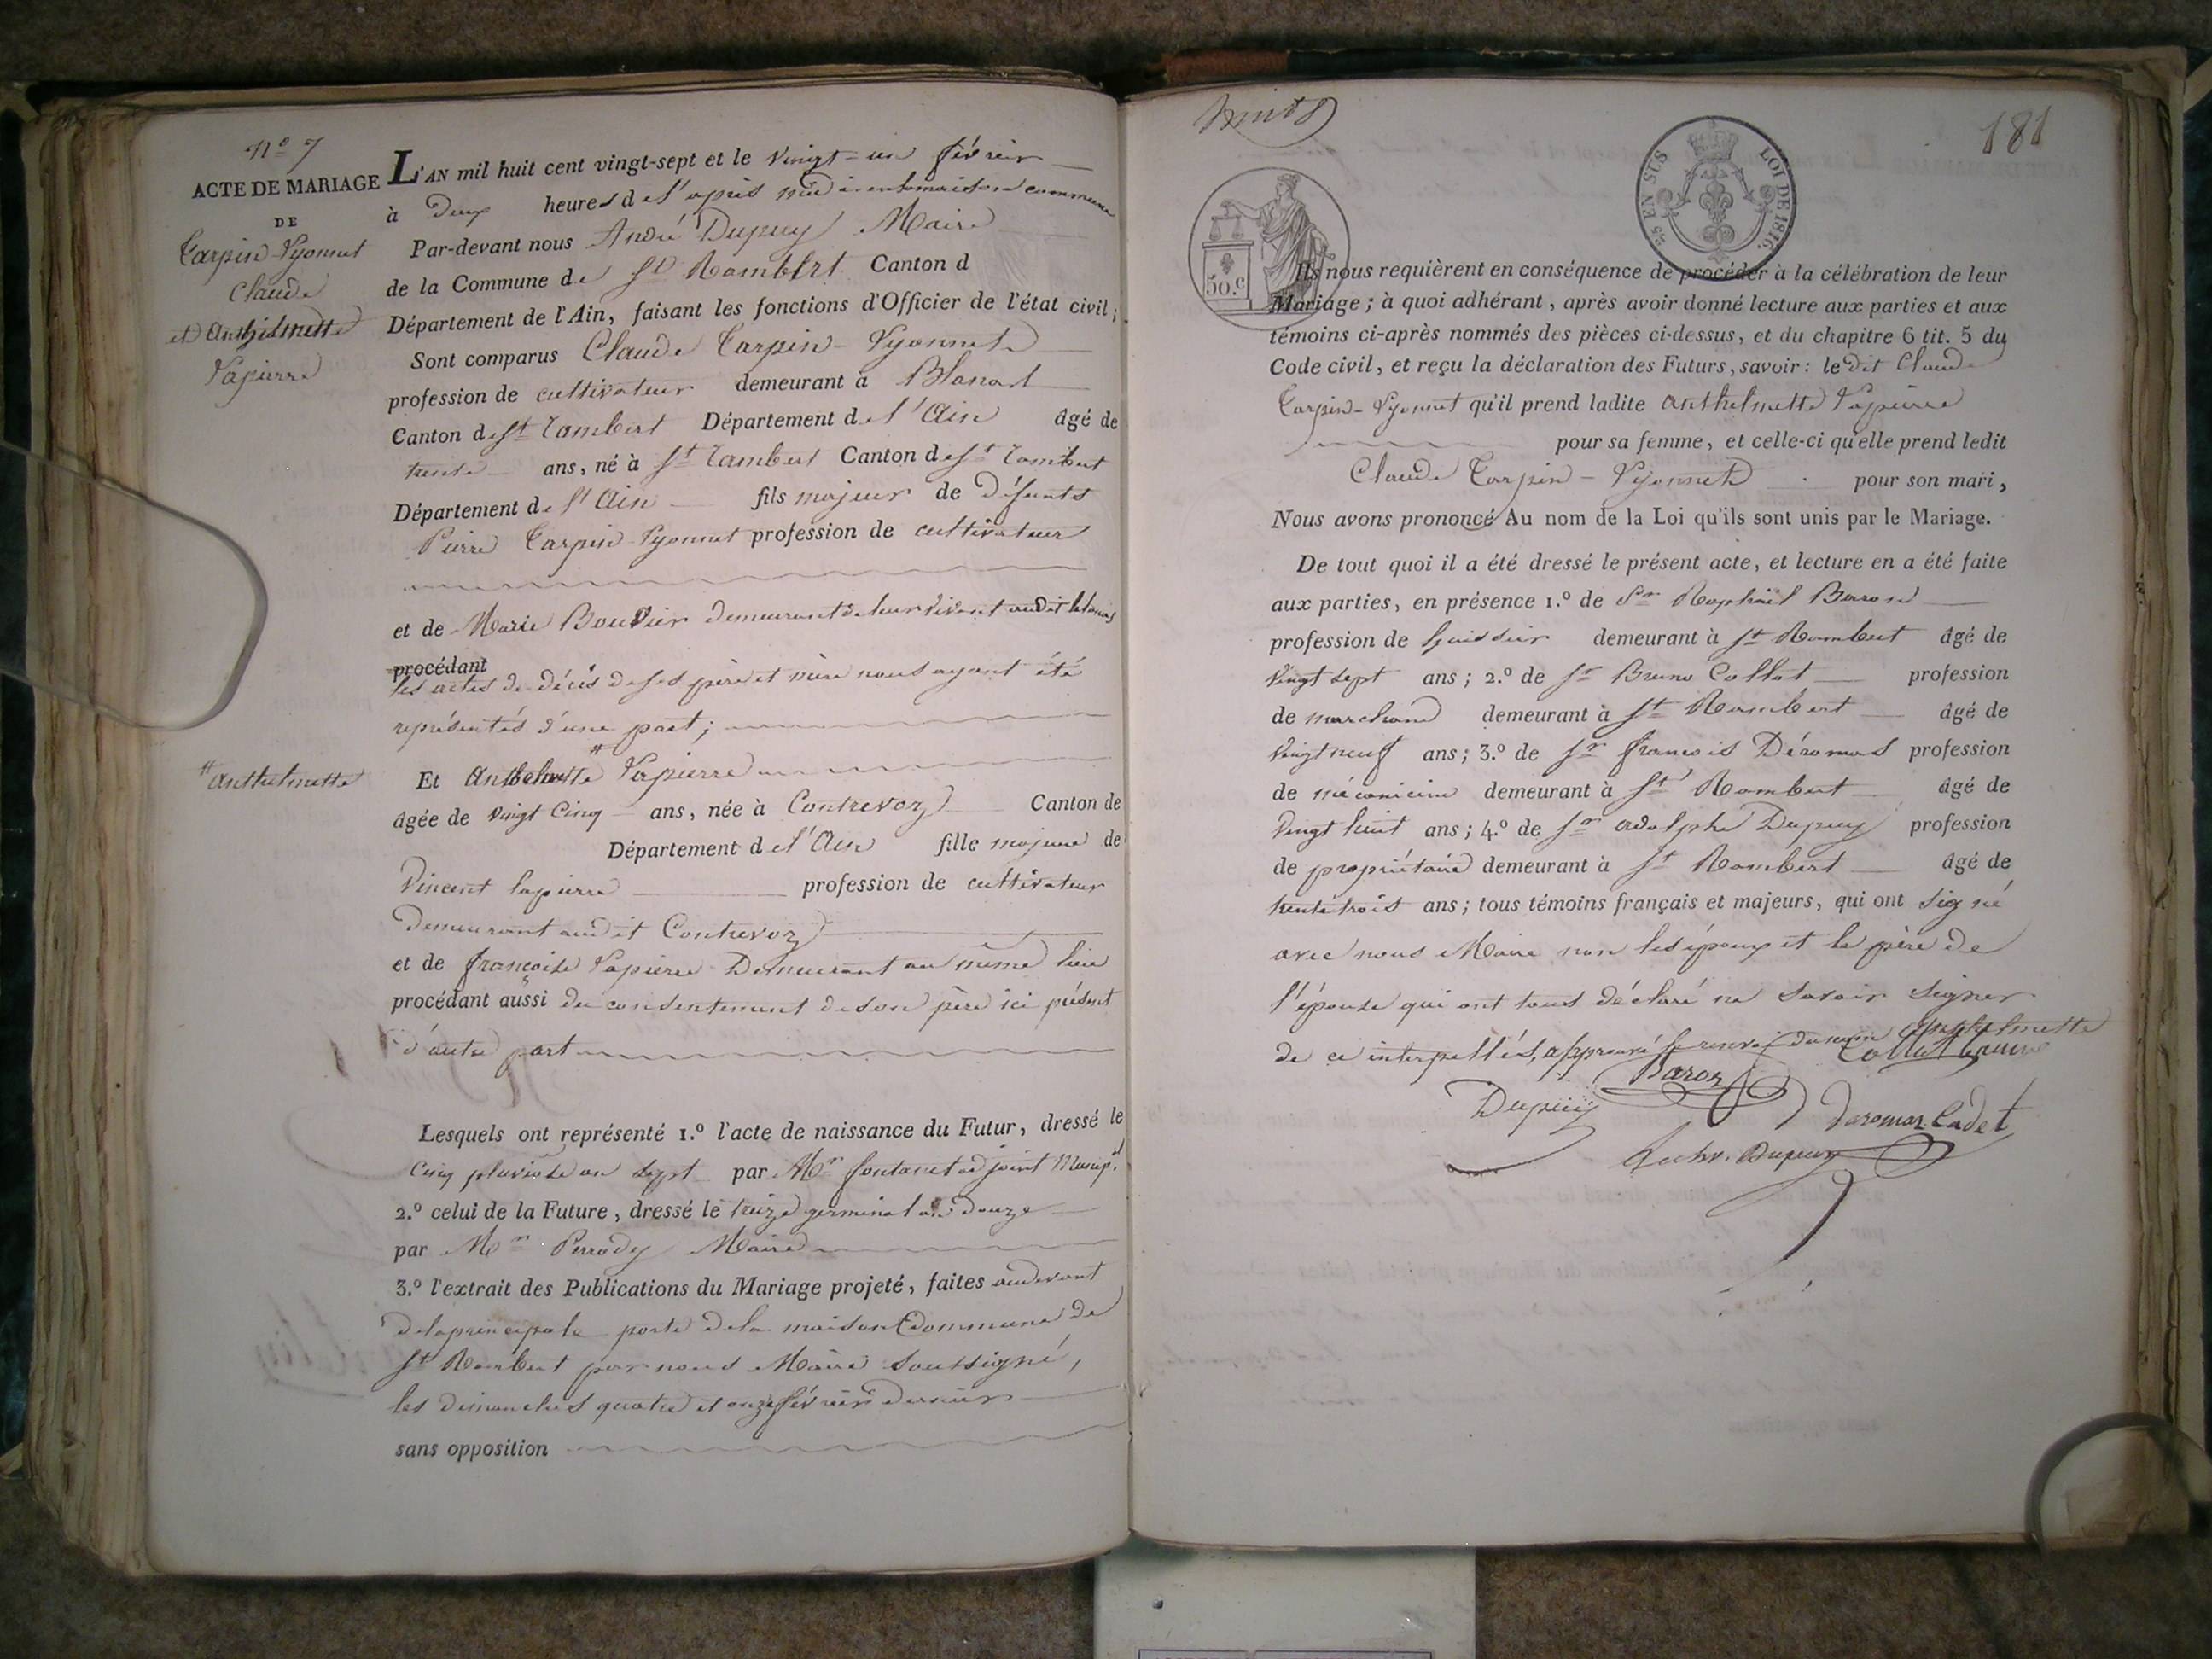 N.º 7
ACTE DE MARIAGE
DE
Carpin-Vyonnet
Claude
et Anthelmette
Lapierre
L'AN mil huit cent vingt-sept et le vingt-un février
à Deux heures de l'après midi en la maison commune
Par-devant nous André Dupuy Maire
de la Commune de St Rambert Canton d
Département de l'Ain, faisant les fonctions d'Officier de l'état civil;
Sont comparus Claude Carpin-Vyonnet
profession de cultivateur demeurant à Blanas
Canton de St Rambert Département de l'Ain âgé de
trente ans, né à St Rambert Canton de St Rambert
Département de l'Ain fils majeur de Défunts
Pierre Carpin-Vyonnet profession de cultivateur
et de Marie Bouvier demeurant de leur vivant audit Blanas
procédant
les actes de décès de ses père et mère nous ayant été
représentés d'une part;
# Anthelmette
Et # Lapierre
âgée de vingt cinq ans, née à Contrevoz Canton de
Département de l'Ain fille majeure de
Vincent lapierre profession de cultivateur
Demeurant audit Contrevoz
et de françoise Lapierre Demeurant au même lieu
procédant aussi du consentement de son père ici présent
d'autre part
Lesquels ont représenté 1.º l'acte de naissance du Futur, dressé le
Cinq pluviose an sept par Mr fontanet adjoint Municip.l
2.º celui de la Future, dressé le treize germinal an douze
par Mr Perrody Maire
3.º l'extrait des Publications du Mariage projeté, faites audevant
de la principale porte de la maison Commune de
St Rambert par nous Maire soussigné,
les dimanches quatre et onze février dernier
sans opposition
181
25 EN SUS LOI DE 1816.
50.c
Ils nous requièrent en conséquence de procéder à la célébration de leur
Mariage; à quoi adhérant, après avoir donné lecture aux parties et aux
témoins ci-après nommés des pièces ci-dessus, et du chapitre 6 tit. 5 du
Code civil, et reçu la déclaration des Futurs, savoir: le dit Claude
Carpin-Vyonnet qu'il prend ladite Anthelmette Lapierre
pour sa femme, et celle-ci qu'elle prend ledit
Claude Carpin-Vyonnet pour son mari,
Nous avons prononcé Au nom de la Loi qu'ils sont unis par le Mariage.
De tout quoi il a été dressé le présent acte, et lecture en a été faite
aux parties, en présence 1.º de Sr Raphaël Baron
profession de huissier demeurant à St Rambert âgé de
vingt sept ans; 2.º de Sr Bruno Collet profession
de marchand demeurant à St Rambert âgé de
vingt neuf ans; 3.º de Sr françois Déromas profession
de mécanicien demeurant à St Rambert âgé de
vingt huit ans; 4.º de Sr adolphe Dupuy profession
de propriétaire demeurant à St Rambert âgé de
trente trois ans; tous témoins français et majeurs, qui ont signé
avec nous Maire non les époux et le père de
l'épouse qui ont tous déclaré ne savoir signer
de ce interpellés, approuvé le renvoi du nom Anthelmette
Collet
Baron
Dupuy
Deromas Cadet
Dupuy